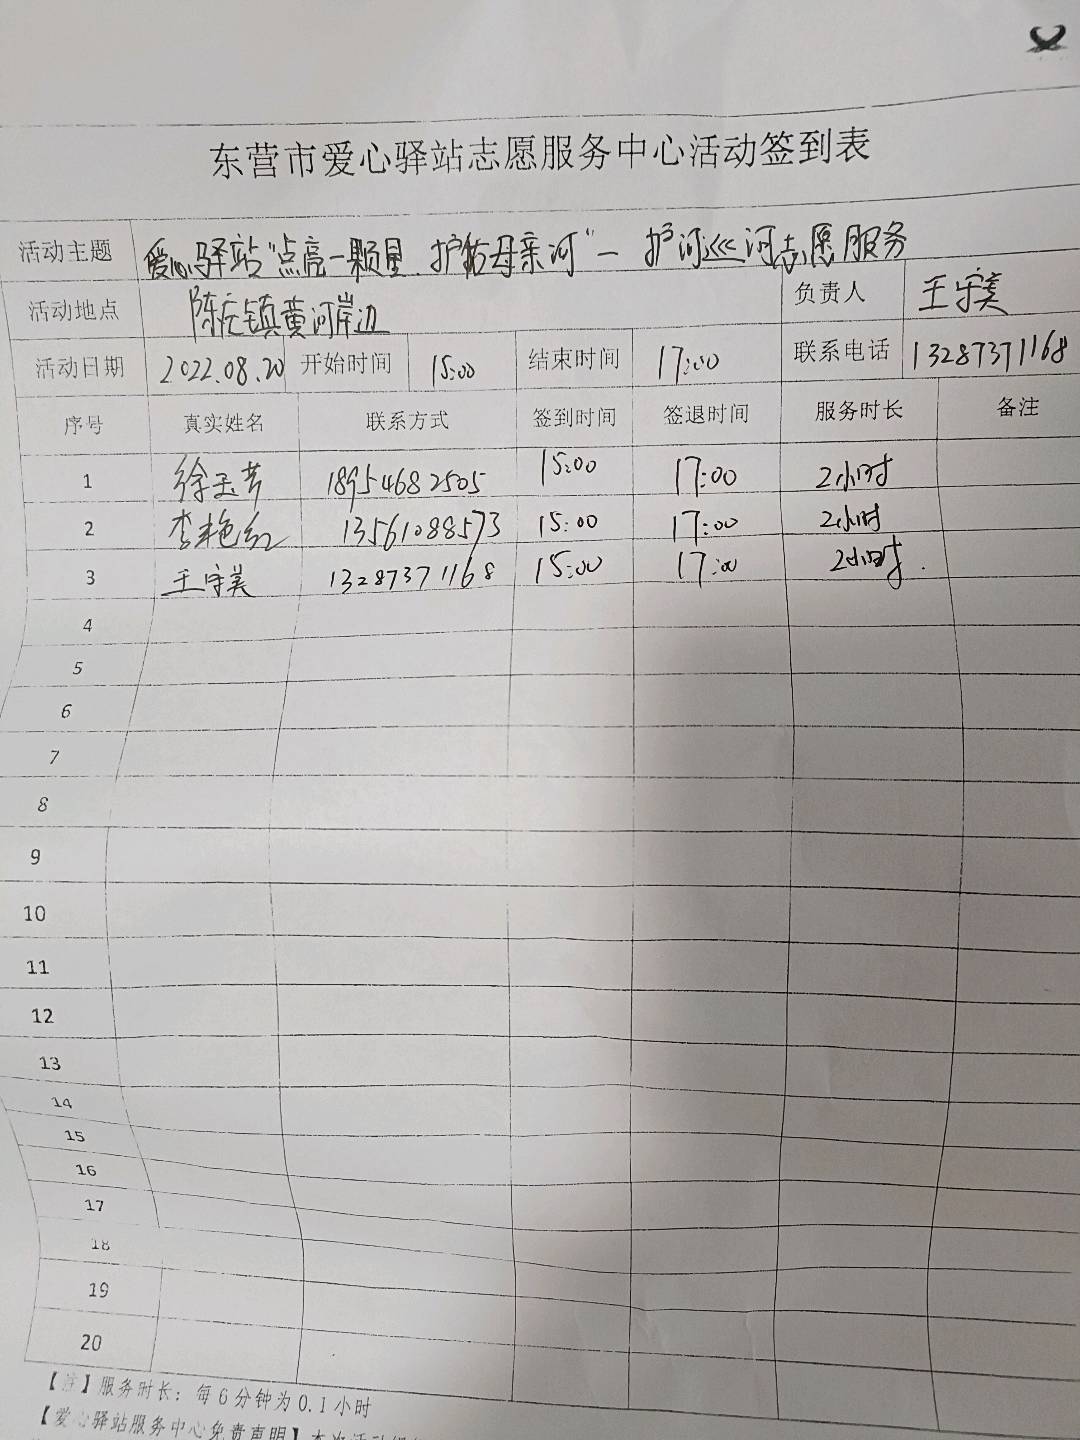 东营市爱心驿站志愿服务中心活动签到表
活动主题 爱心驿站“点亮一颗星 护佑母亲河”— 护河巡河志愿服务
活动地点 陈庄镇黄河岸边 负责人 王守美
活动日期 2022.08.20 开始时间 15:00 结束时间 17:00 联系电话 13287371168
序号 真实姓名 联系方式 签到时间 签退时间 服务时长 备注
1 徐玉芳 18954682505 15:00 17:00 2小时
2 李艳红 13561088573 15:00 17:00 2小时
3 王守美 13287371168 15:00 17:00 2小时.
4
5
6
7
8
9
10
11
12
13
14
15
16
17
18
19
20
【注】服务时长：每6分钟为0.1小时
【爱心驿站服务中心免责声明】本次活动